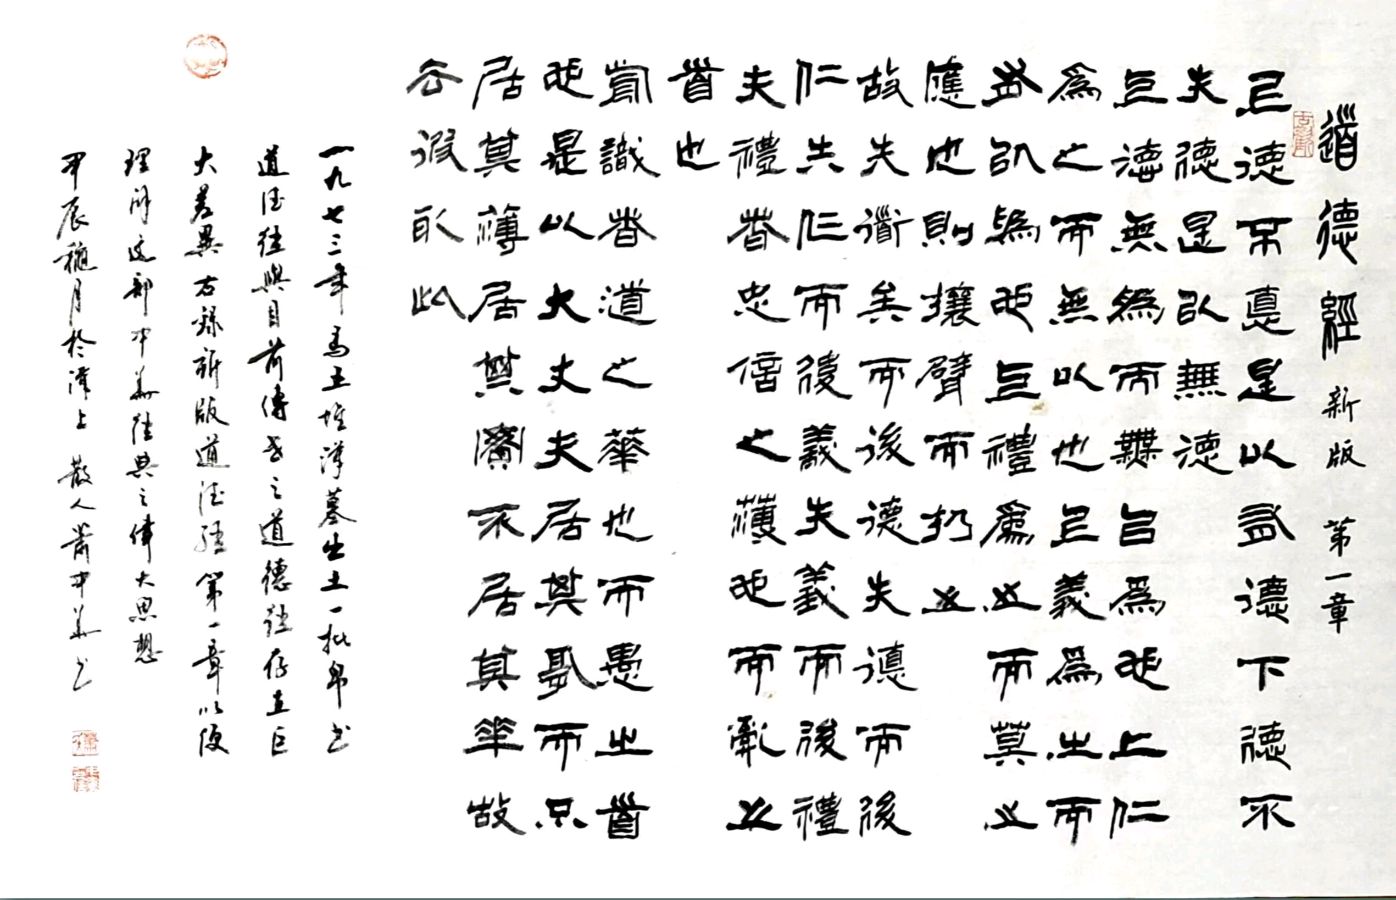 道德經 新版 第一章
上德不悳是以有德下德不
失德是以無德
上德無為而無以為也上仁
為之而無以也上義為之而
有以為也上禮為之而莫之
應也則攘臂而扔之
故失道矣而後德失德而後
仁失仁而後義失義而後禮
夫禮者忠信之薄也而亂之
首也
前識者道之華也而愚之首
也是以大丈夫居其厚而不
居其薄居其實不居其華故
去彼取此
一九七三年馬王堆漢墓出土一批帛书
道德經與目前傳世之道德經存在巨
大差異右録新版道德經第一章以便
理解这部中華經典之偉大思想
甲辰穐月於漢上 散人蕭中華书